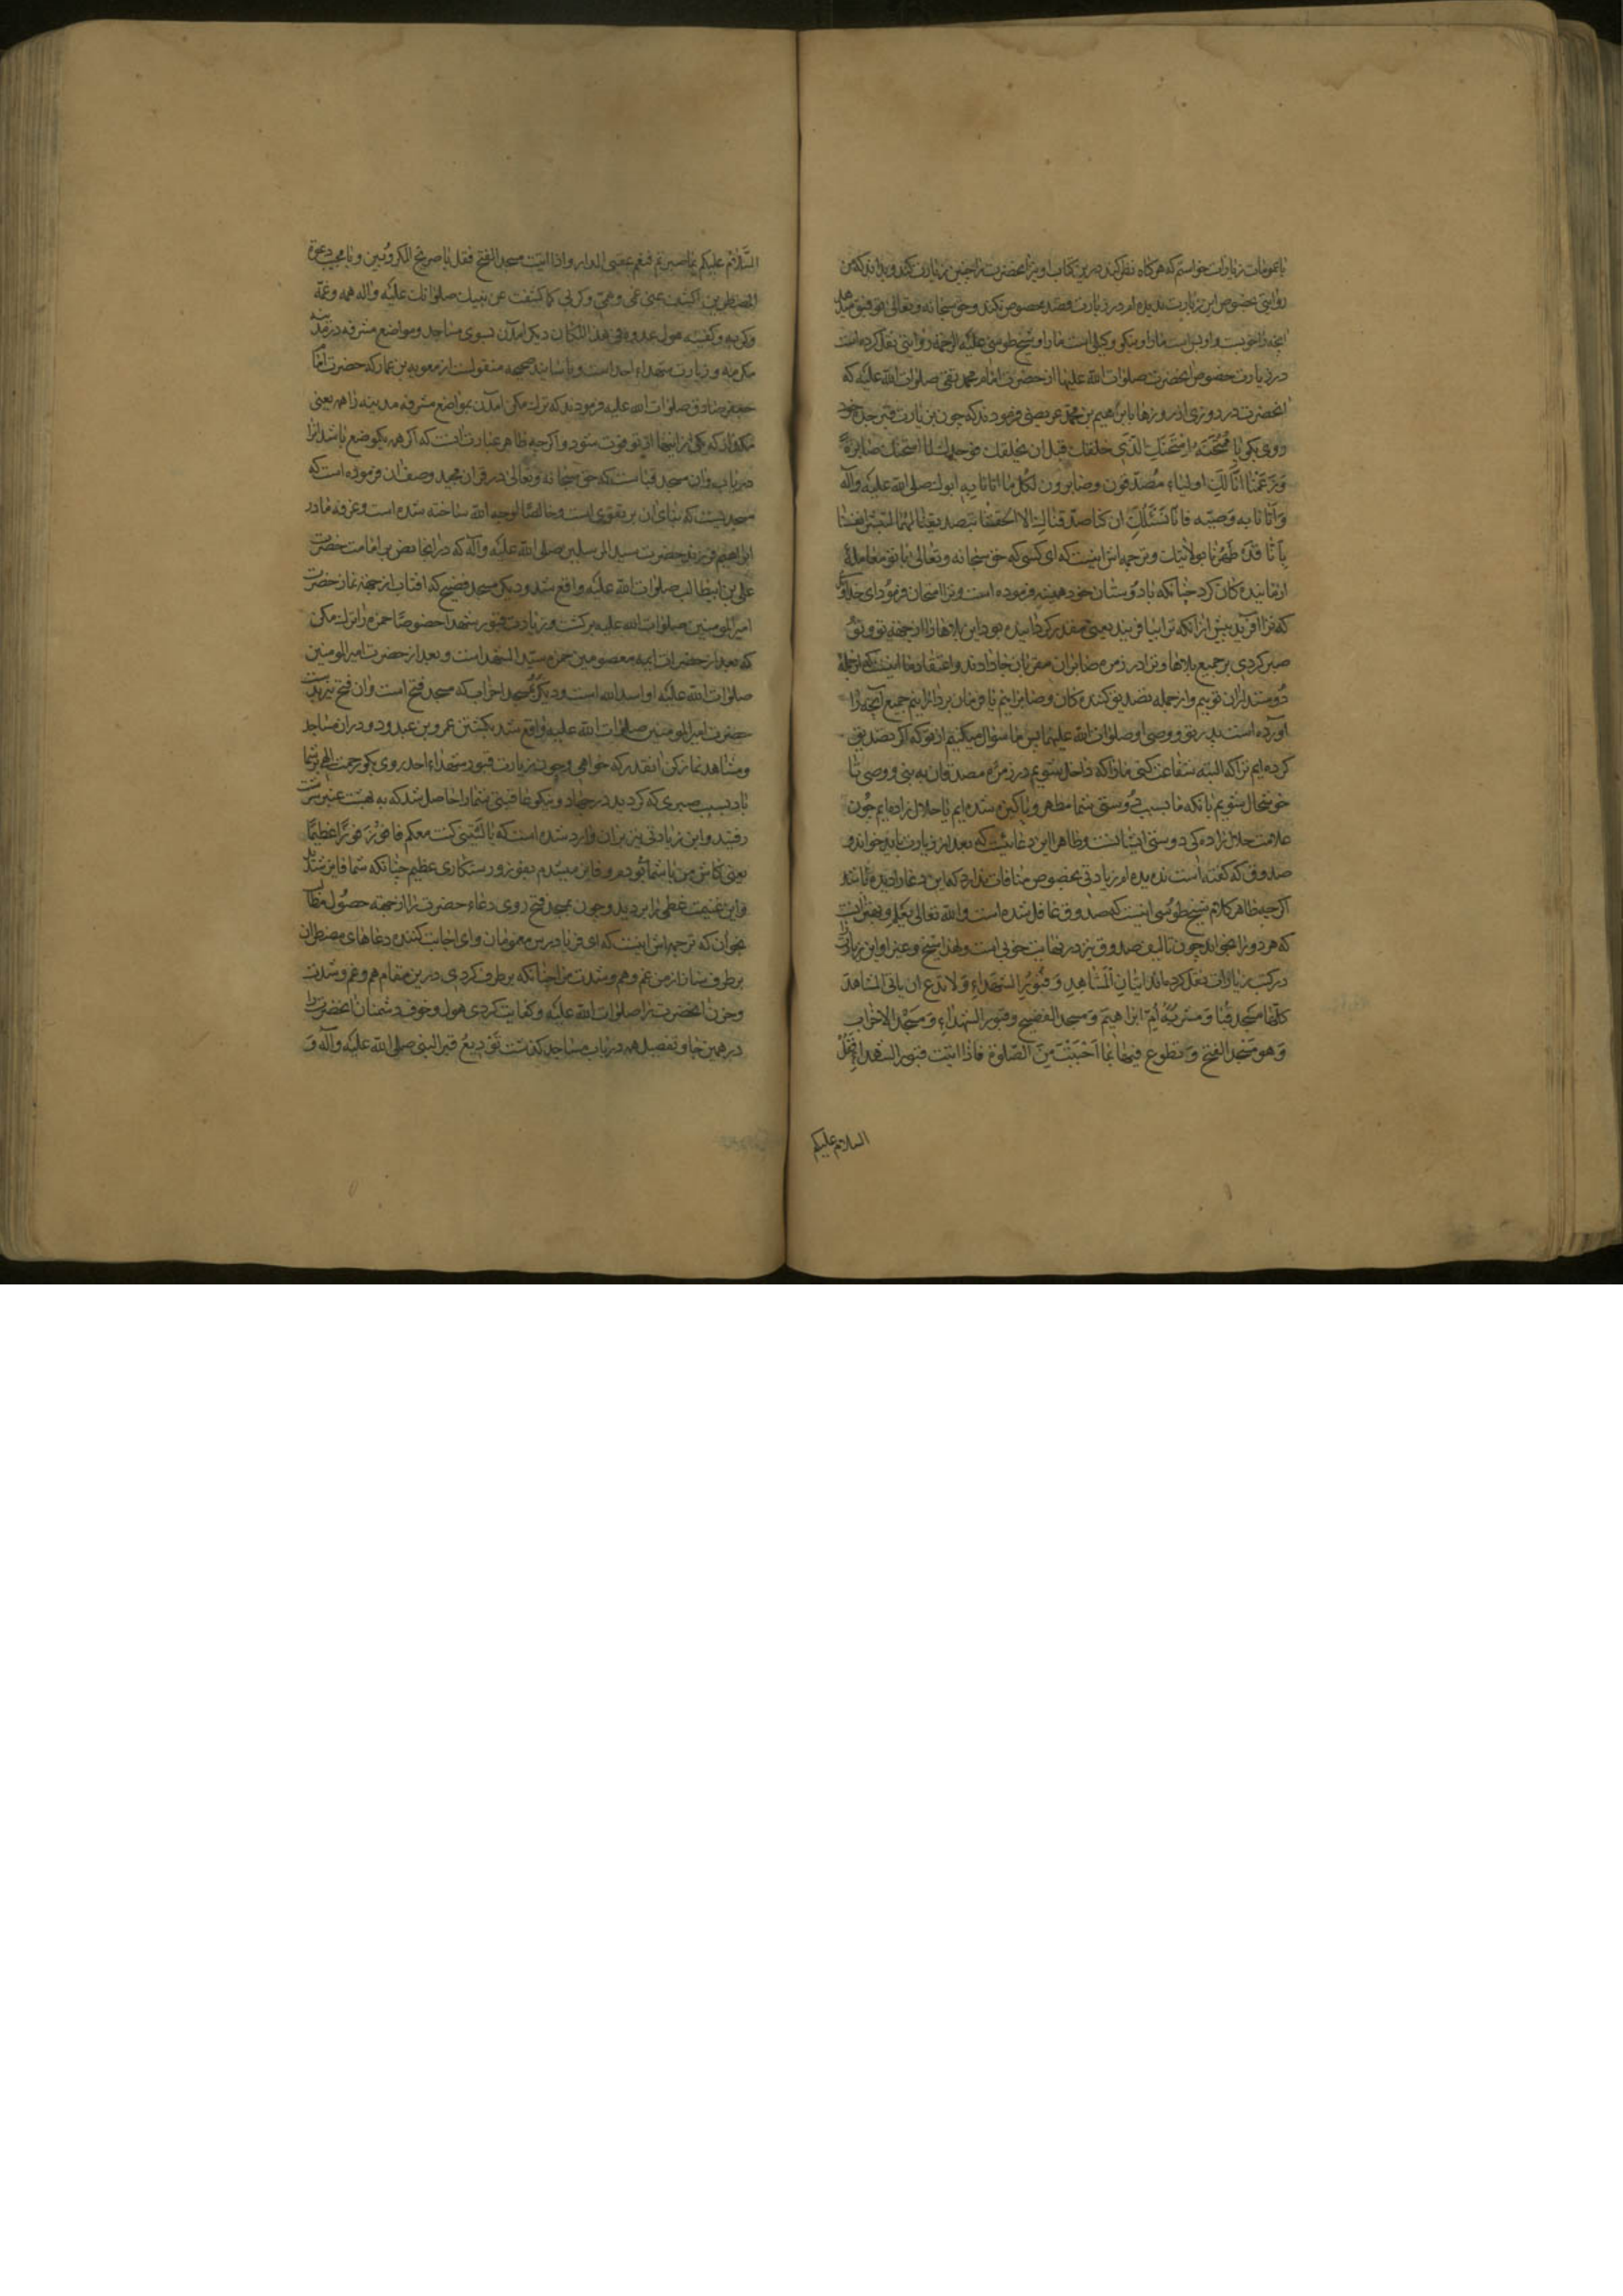 روایتی بخصوص این زیارت ندیده‌ام در زیارت قصد مخصوص نکند و حق سبحانه و تعالی توفیق
آنچه را خوبست و او بس است ما را و نیکو وکیلی است ما را و شیخ طوسی علیه الرحمة روایتی نقل کرده است
در زیارت خصوص انحضرت صلوات الله علیها از حضرت امام محمد تقی صلوات الله علیه که
انحضرت در روزی از روزها با براهیم بن محمد عریضی فرمودند که چون بزیارت قبر جده خود
روی بکو یا مُمْتَحَنَةُ امْتَحَنَكِ الَّذی خلقك قبل ان یخلقك فوجدك لما امتحنك صابرةً
وَ زَعَمْنا انَّا لَكِ اولیاء مُصَدِّقون و صابرون لکُلّ ما اتانا به ابوك صلی الله علیه وآله
وَ اَتانا به وَصیّه فانّا نَسْئَلُكِ ان کنا صدّقناكِ الا الحقتنا بتصدیقنا لهما لنبشّر انفسنا
بِاَنّا قَدْ طَهُرْنا بولایتك و ترجمه اش اینست که ای کسی که حق سبحانه و تعالی با تو معامله
ازمایندکان کرد چنانکه با دوستان خود همیشه فرموده است و ترا امتحان فرمود ای خدای
که ترا آفرید پیش ازانکه ترا بیافریند یعنی مقدر کردانیده بود این بلاها را از جهة تو و تو
صبر کردی بر جمیع بلاها و ترا در زمره صابران مقربان جا دادند و اعتقاد ما اینست که از جمله
دوستداران توییم و از جمله تصدیق کننده کان و صابرانیم یا فرمان بردارانیم جمیع آنچه را
آورده است پدر تو و وصی او صلوات الله علیهما پس ما سؤال میکنیم از تو که اکر تصدیق
کرده ایم ترا که البته شفاعت کنی ما را که داخل شویم در زمره مصدقان به نبی و وصی تا
خوشحال شویم بانکه ما بسبب دوستی شما مطهر و پاکیزه شده ایم یا حلال زاده ایم چون
علامت حلال زاده کی دوستی ایشانست و ظاهرا این دعائیست که بعد از زیارت باید خواند و
صدوق که کفته است ندیده ام زیارتی بخصوص منافات ندارد که این دعا را دیده باشد
اکرچه ظاهر کلام شیخ طوسی اینست که صدوق غافل شده است والله تعالی یعلم و بهتر انست
که هر دو را بخواند چون تالیف صدوق نیز در نهایت خوبی است و لهذا شیخ و غیر او این زیارت
در کتب زیارات نقل کرده‌اند اتیانِ المَشاهِدِ وَ قُبُورِ الشهداءِ وَ لا تدَع ان یاتی المشاهد
کلّها مسجد قُبا وَ مشربَةُ اُمّ ابراهیمَ وَ مسجد الفضیح و قبور الشهداءِ وَ مَسْجِدُ الاحزاب
وَ هو مَسْجِدُ الفتح وَ تطوع فیها بما اَحْبَبْتَ مِنَ الصّلوة فاذا اتیت قبور الشهداء فَقُلْ
السلام علیکم
السَّلامُ علیکم بما صبرتم فنعم عقبی الدار و اذا اتیت مسجد الفتح فقل یا صریخ المکروبین و یا مجیب دعوة
المضطرین اکشف عنی غمی و همّی و کربی کما کشفت عن نبیك صلواتك علیه واله همه و غمّه
و کربه و کفیته هول عدوه فی هذا المکان دیکر امدن بسوی مساجد و مواضع مشرفه در مدینه
مکرمه و زیارت شهداء احد است و باسانید صحیحه منقولست از معویه بن عمار که حضرت امام
جعفر صادق صلوات الله علیه فرمودند که ترك مکن امدن بمواضع مشرفه مدینه را همه یعنی
مکذار که یکی از اینها از تو فوت شود و اکرچه ظاهر عبارت انست که اکر همه یکوضع باشد انرا
دریاب و ان مسجد قباست که حق سبحانه و تعالی در قران مجید وصف ان فرموده است که
مسجدیست که بنای ان بر تقوی است و خالصًا لوجه الله ساخته شده است و غرفه مادر
ابراهیم فرزند حضرت سید المرسلین صلی الله علیه وآله که در انجا نص بر امامت حضرت
علی بن ابیطالب صلوات الله علیه واقع شد و دیکر مسجد فضیح که افتاب از جهة نماز حضرت
امیرالمومنین صلوات الله علیه برکشت و زیارت قبور شهدا خصوصًا حمزه را ترك مکن
که بعد از حضرات ایمه معصومین حمزه سیّد الشهدا است و بعد از حضرت امیرالمومنین
صلوات الله علیه او اسد الله است و دیکر مسجد احزاب که مسجد فتح است و ان فتح
حضرت امیرالمومنین صلوات الله علیه واقع شد بکشتن عمرو بن عبدود و در ان مساجد
و مشاهد نماز کن انقدر که خواهی و چون بزیارت قبور شهداء احد روی بکو رحمت الهی بر شما
باد بسبب صبری که کردید در جهاد و نیکو عاقبتی شما را حاصل شد که به بهشت عنبر سرشت
رفتید و این زیادتی نیز بران وارد شده است که یا لَیْتَنی کنت معکم فافوزَ فوزًا عظیمًا
یعنی کاش من با شما بودم و فایز میشدم بفوز و رستکاری عظیم چنانکه شما فایز شدید
و این غنیمت عظمی را بردید و چون بمسجد فتح روی دعاء حضرت را از جهة حصول مطالب
بخوان که ترجمه‌اش اینست که ای فریادرس مغمومان و ای اجابت کننده دعاهای مضطران
برطرف ساز از من غم و هم و شدت مرا چنانکه برطرف کردی در این مقام هم و غم و شدت
و حزن انحضرت را صلوات الله علیه و کفایت کردی هول و خوف دشمنان انحضرت را
در همین جا و تفصیل همه در باب مساجد کذشت تَوْدیعُ قبر النبی صلی الله علیه وآله وَ